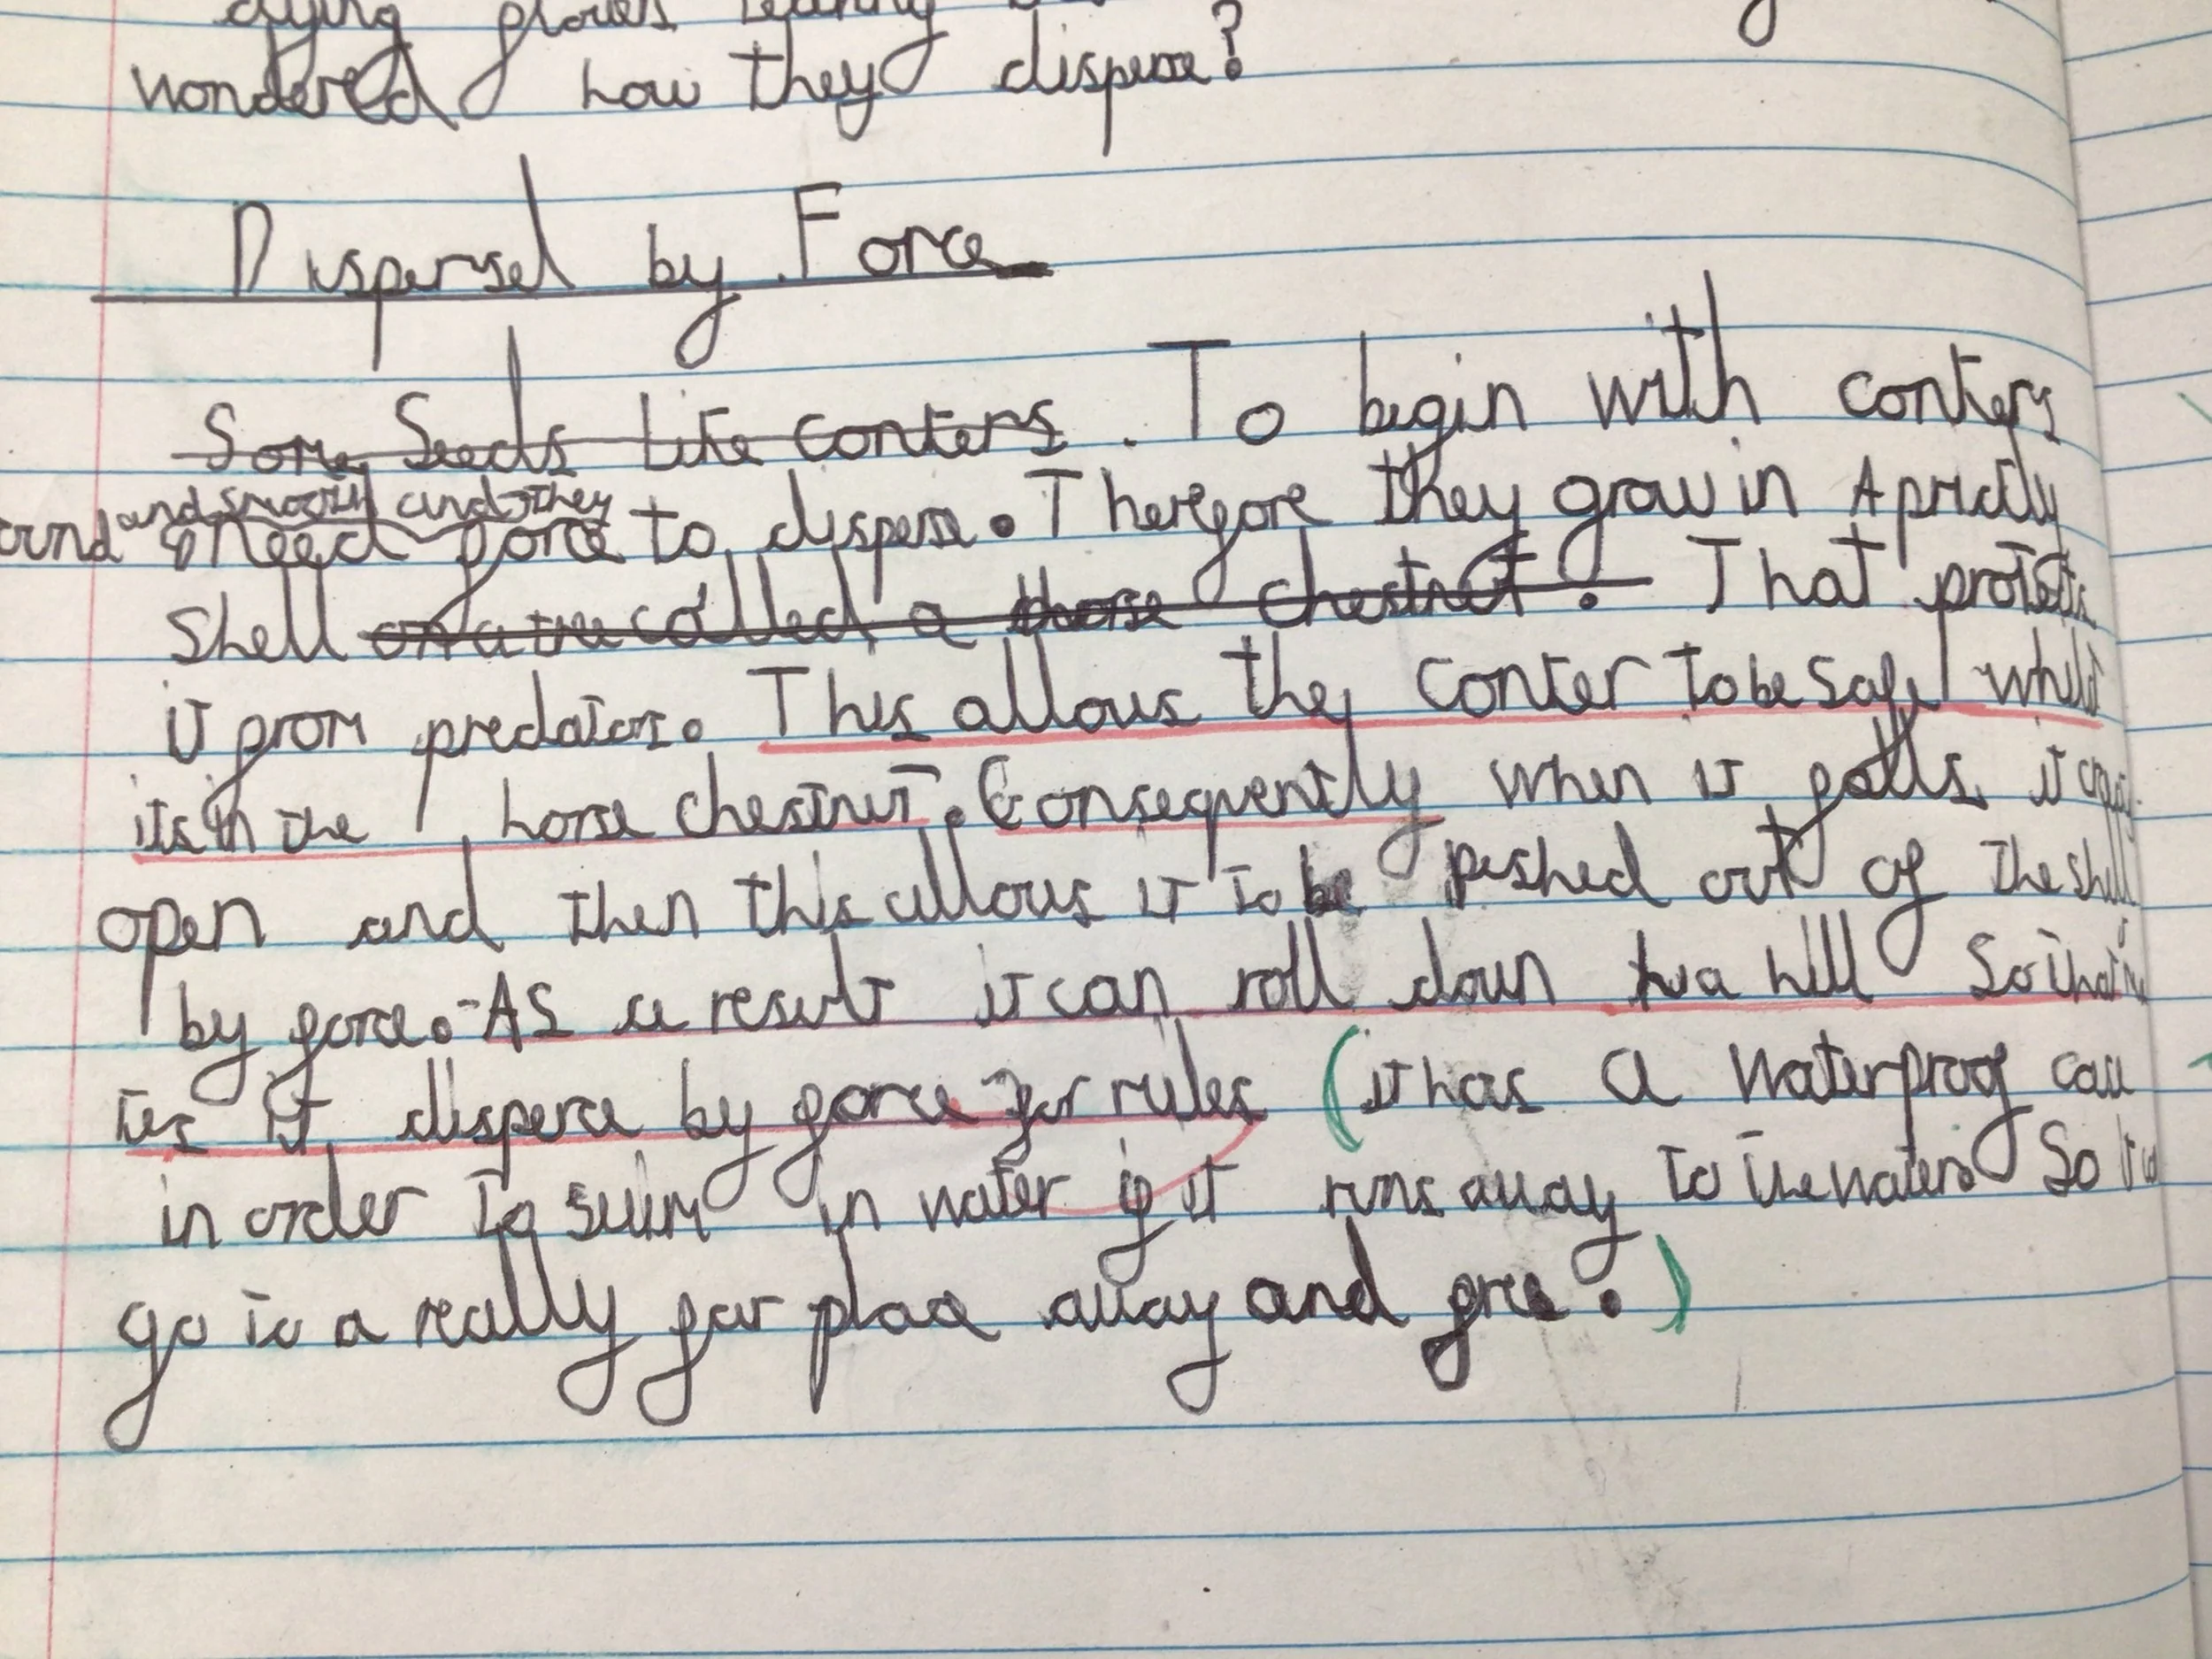 wondered how they disperse?
Dispersel by Force
Some Seeds Like Conters. To begin with conters
and smooth and they
need force to disperse. Therefore they grow in A prickly
shell on a tree called a horse chestnut. That protects
it from predators. This allows the conter to be safe whilst
its in the horse chestnut. Consequently when it falls it
open and then this allows it to be pushed out of the shell
by force. As a result it can roll down a hill So that
it disperce by force for rules (it has a waterproof
in order to swim in water if it runs away to the waters So
go to a really far place away and .)